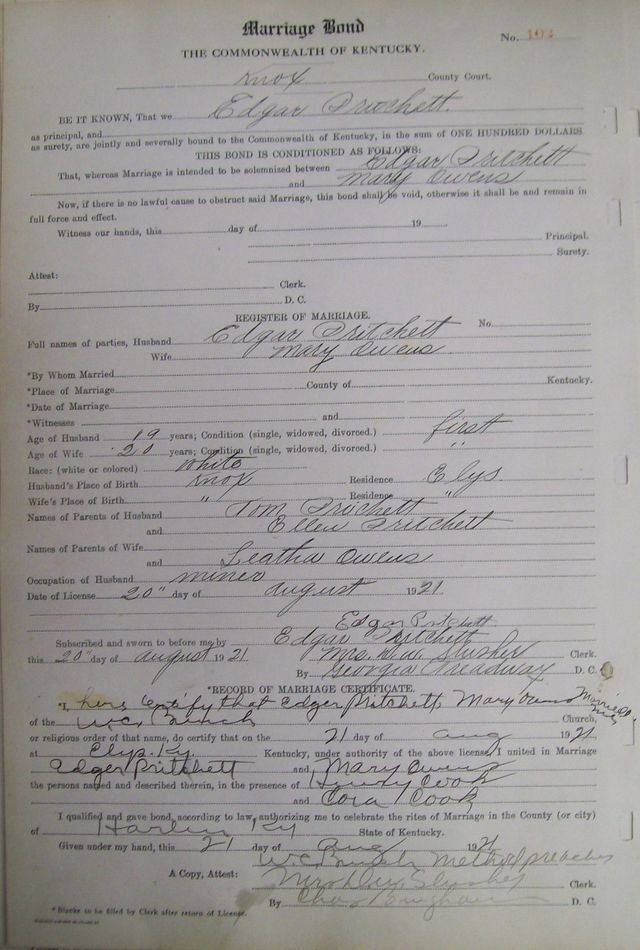 Marriage Bond
No. 192
THE COMMONWEALTH OF KENTUCKY.
Knox County Court.
BE IT KNOWN, That we Edgar Pritchett.
as principal, and
as surety, are jointly and severally bound to the Commonwealth of Kentucky, in the sum of ONE HUNDRED DOLLARS.
THIS BOND IS CONDITIONED AS FOLLOWS:
That, whereas Marriage is intended to be solemnized between Edgar Pritchett
and Mary Owens
Now, if there is no lawful cause to obstruct said Marriage, this bond shall be void, otherwise it shall be and remain in
full force and effect.
Witness our hands, this day of 19
Principal.
Surety.
Attest:
Clerk.
By D. C.
REGISTER OF MARRIAGE.
Full names of parties, Husband Edgar Pritchett No.
Wife Mary Owens
*By Whom Married
*Place of Marriage County of Kentucky.
*Date of Marriage
*Witnesses and
Age of Husband 19 years; Condition (single, widowed, divorced.) first
Age of Wife 20 years; Condition (single, widowed, divorced.) "
Race: (white or colored) White
Husband's Place of Birth Knox Residence Elys.
Wife's Place of Birth " Residence "
Names of Parents of Husband Tom Pritchett
and Ellen Pritchett
Names of Parents of Wife
and Leatha Owens
Occupation of Husband miner
Date of License 20" day of August 1921.
Edgar Pritchett
Subscribed and sworn to before me by Edgar Pritchett
this 20" day of August 1921 Mrs. D.W. Slusher Clerk.
By Georgia Treadway D. C.
*RECORD OF MARRIAGE CERTIFICATE.
*I, hers Certify that Edger Pritchett, Mary Married
of the W.C. Church,
or religious order of that name, do certify that on the 21 day of Aug 1921
at Elys. Ky. Kentucky, under authority of the above license, I united in Marriage
Edger Pritchett and Mary Owens
the persons named and described therein, in the presence of Henry Cook
and Cora Cook
I qualified and gave bond, according to law, authorizing me to celebrate the rites of Marriage in the County (or city)
of Harlin Ky State of Kentucky.
Given under my hand, this 21 day of Aug 1921
W.C. preacher
A Copy, Attest: Mrs. D.W. Slusher Clerk.
By D. C.
* Blanks to be filled by Clerk after return of License.